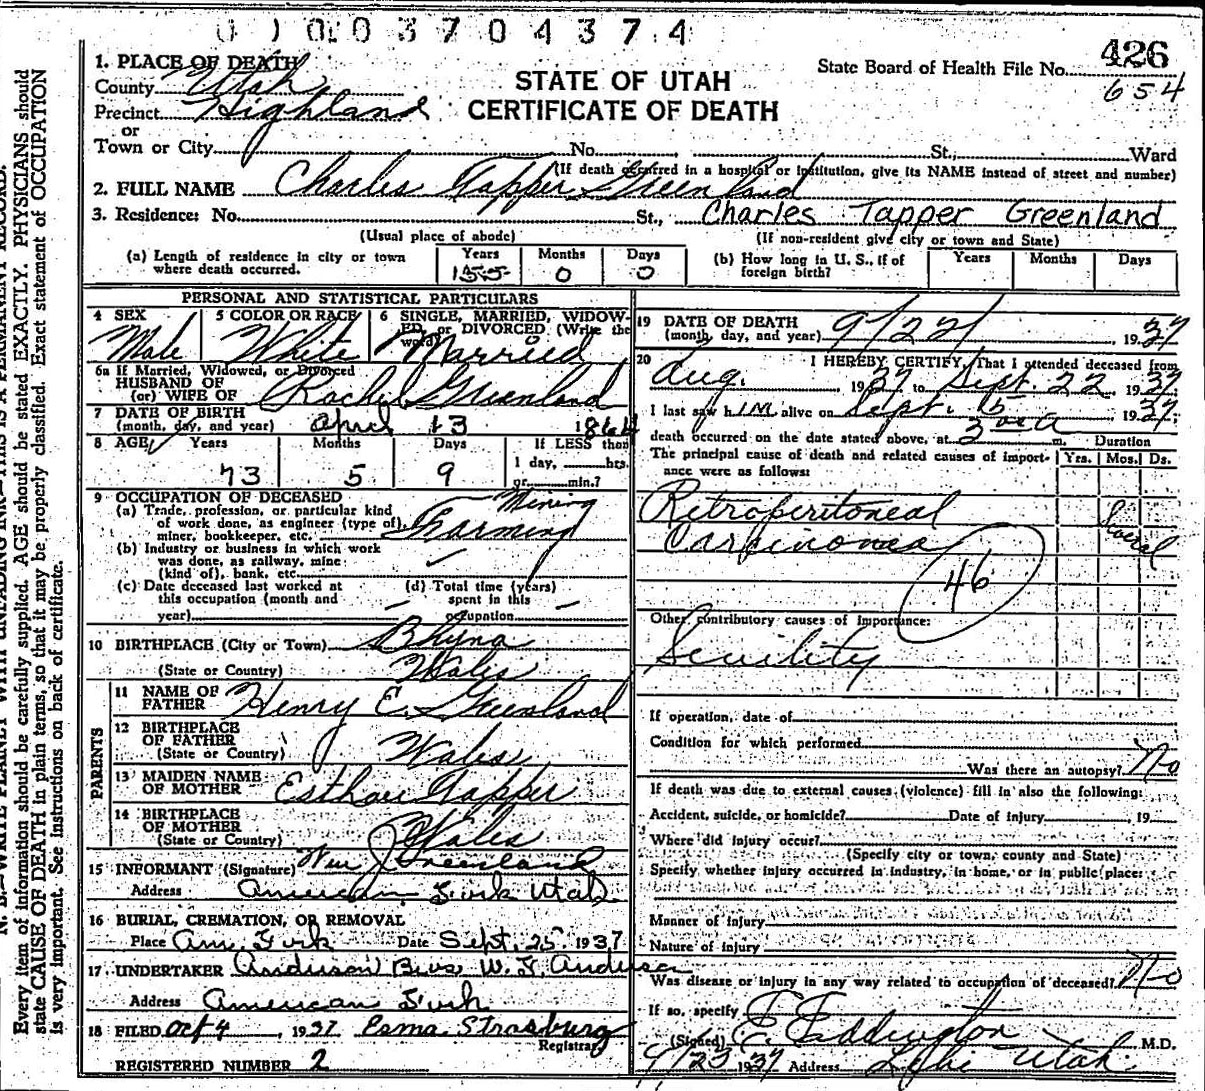 0 ) 0 0 3 7 0 4 3 7 4
426
State Board of Health File No.
654
STATE OF UTAH
CERTIFICATE OF DEATH
1. PLACE OF DEATH
County Utah
Precinct Highland
or
Town or City No. , St., Ward
(If death occurred in a hospital or institution, give its NAME instead of street and number)
2. FULL NAME Charles Tapper Greenland
3. Residence: No. St., Charles Tapper Greenland
(Usual place of abode) (If non-resident give city or town and State)
(a) Length of residence in city or town where death occurred. Years Months 0 Days 0
(b) How long in U. S., if of foreign birth? Years Months Days
PERSONAL AND STATISTICAL PARTICULARS
4 SEX Male
5 COLOR OR RACE White
6 SINGLE, MARRIED, WIDOWED, or DIVORCED (Write the word) Married
6a If Married, Widowed, or Divorced
HUSBAND OF
(or) WIFE OF Rachel Greenland
7 DATE OF BIRTH
(month, day, and year) April 13 1864
8 AGE Years 73 Months 5 Days 9 If LESS than 1 day, hrs. or min.?
9 OCCUPATION OF DECEASED
(a) Trade, profession, or particular kind of work done, as engineer (type of), miner, bookkeeper, etc. Mining Farming
(b) Industry or business in which work was done, as railway, mine (kind of), bank, etc.
(c) Date deceased last worked at this occupation (month and year)
(d) Total time (years) spent in this occupation
10 BIRTHPLACE (City or Town) Bhyna
(State or Country) Wales
PARENTS
11 NAME OF FATHER Henry E. Greenland
12 BIRTHPLACE OF FATHER
(State or Country) Wales
13 MAIDEN NAME OF MOTHER Esthou Tapper
14 BIRTHPLACE OF MOTHER
(State or Country) Wales
15 INFORMANT (Signature) Wm J Greenland
Address American Fork Utah
16 BURIAL, CREMATION, OR REMOVAL
Place Am. Fork Date Sept. 25 1937
17 UNDERTAKER Anderson Bros W. F. Anderson
Address American Fork
18 FILED Oct 4, 1937 Esma Strasburg
Registrar
REGISTERED NUMBER 2
19 DATE OF DEATH
(month, day, and year) 9/22/, 1937
20 I HEREBY CERTIFY, That I attended deceased from
Aug. 1937 to Sept. 22 1937
I last saw him alive on Sept. 15 1937
death occurred on the date stated above, at 3 m. Duration
The principal cause of death and related causes of importance were as follows: Yrs. Mos. Ds.
Retroperitoneal Several
Carcinoma
46
Other contributory causes of importance:
Senility
If operation, date of
Condition for which performed
Was there an autopsy? No
If death was due to external causes (violence) fill in also the following:
Accident, suicide, or homicide? Date of injury , 19
Where did injury occur?
(Specify city or town, county and State)
Specify whether injury occurred in industry, in home, or in public place:
Manner of injury
Nature of injury
Was disease or injury in any way related to occupation of deceased? No
If so, specify
(Signed) E. Eddington M.D.
9/23 1937 Address Lehi Utah
N. B.—WRITE PLAINLY WITH UNFADING INK—THIS IS A PERMANENT RECORD.
Every item of information should be carefully supplied. AGE should be stated EXACTLY. PHYSICIANS should
state CAUSE OF DEATH in plain terms, so that it may be properly classified. Exact statement of OCCUPATION
is very important. See instructions on back of certificate.